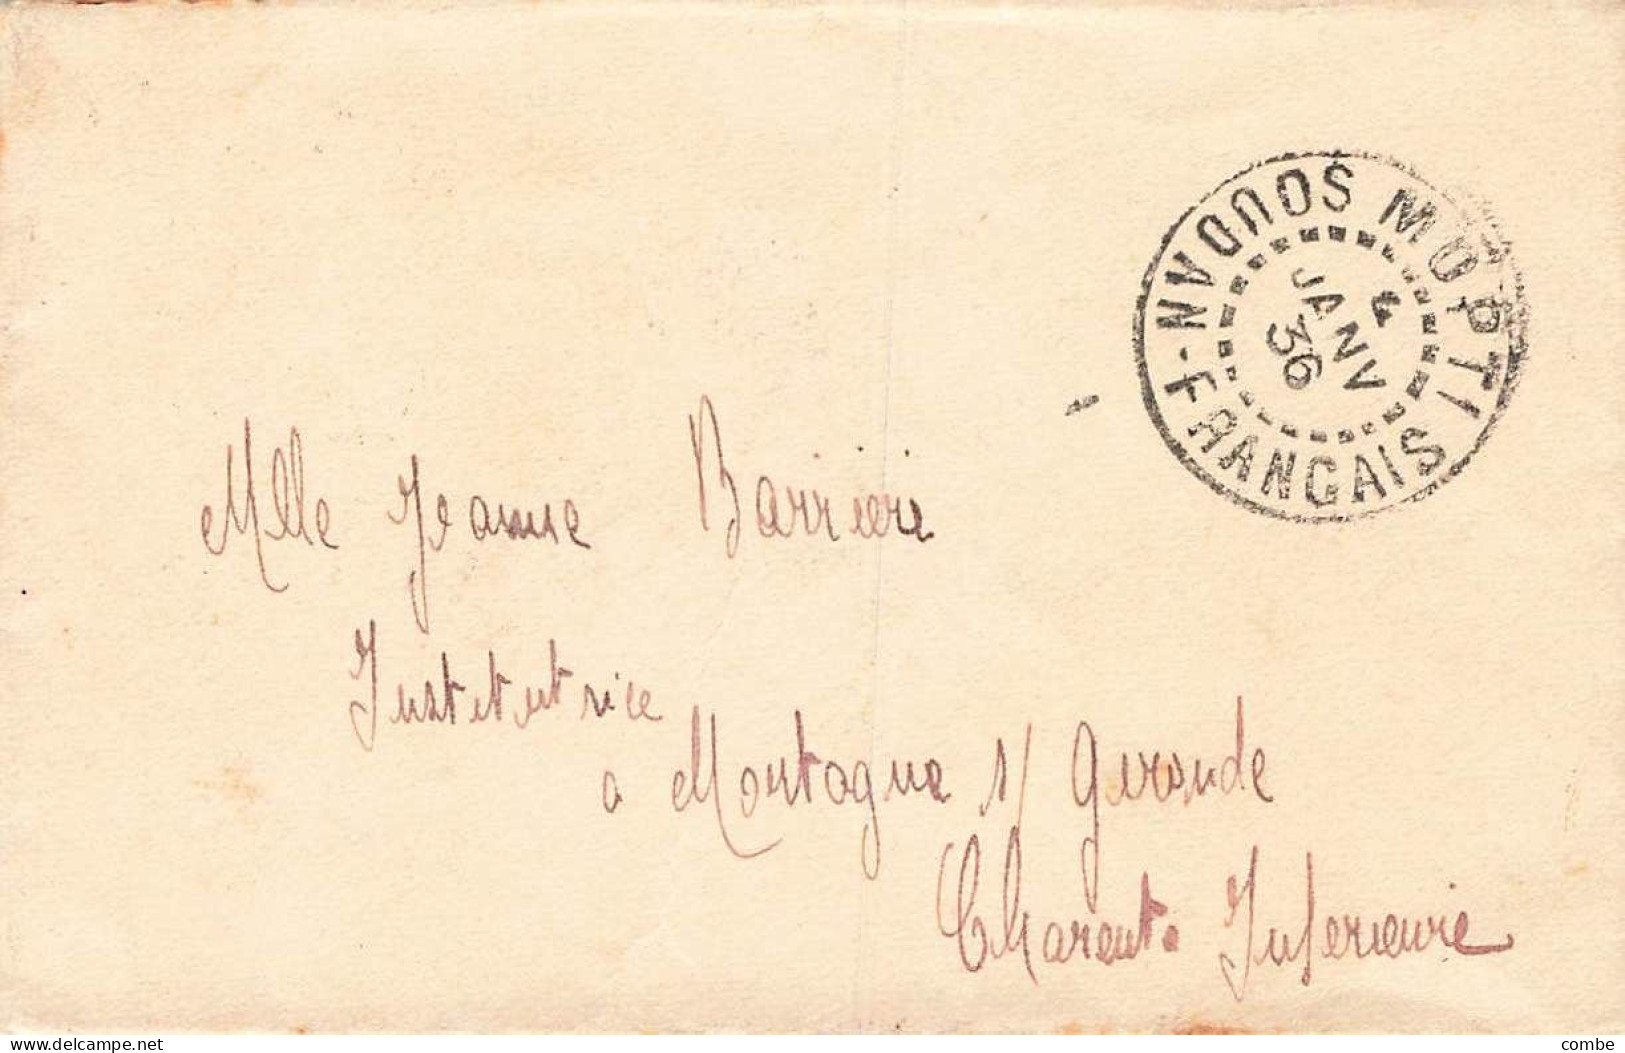 MOPTI
SOUDAN-FRANCAIS
4
JANV
36
Mlle Jeanne Barrière
Institutrice
à Mortagne s/ Gironde
Charente Inferieure
www.delcampe.net
combe